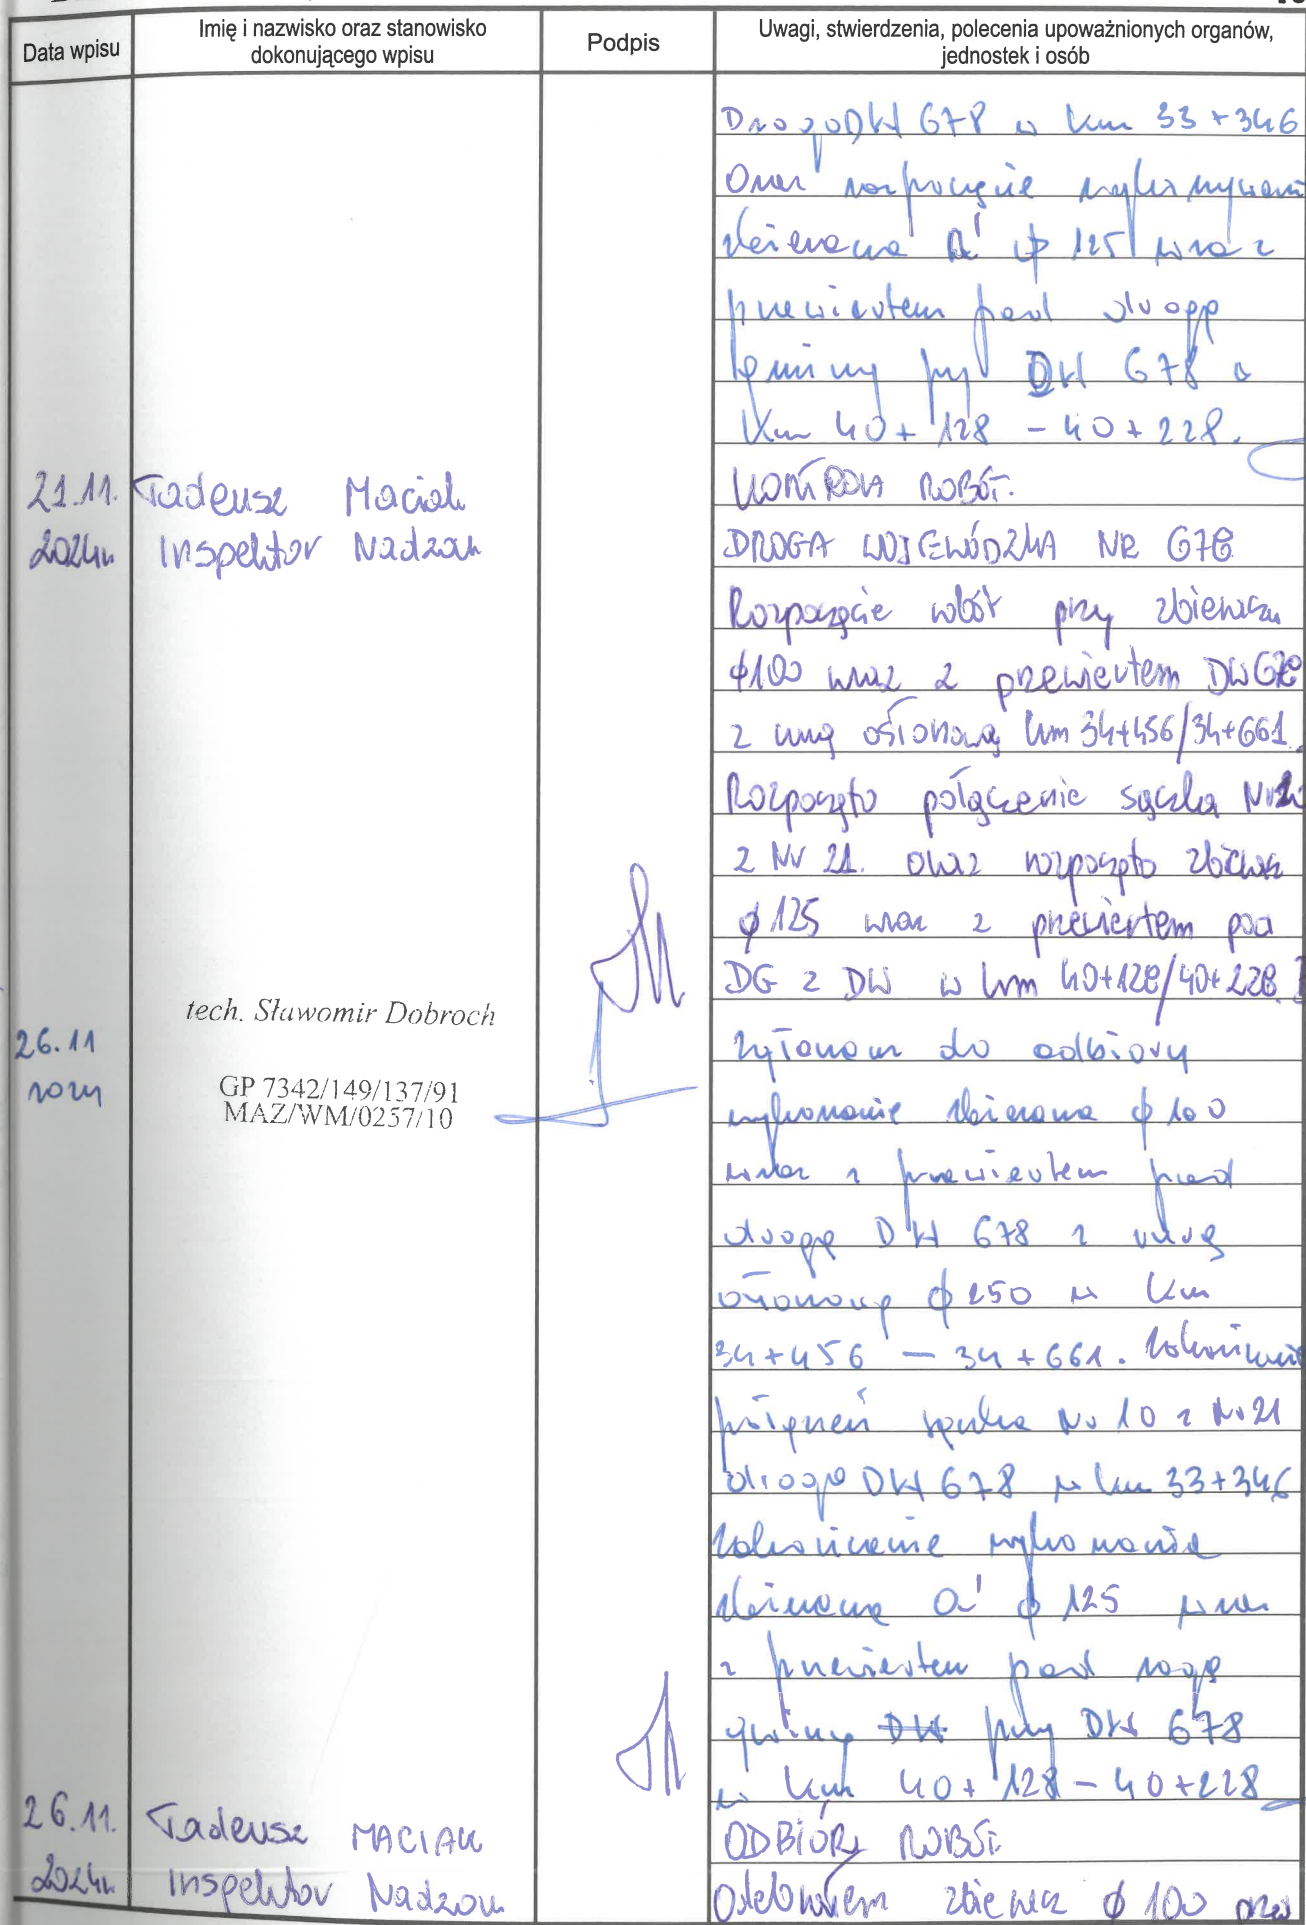 Data wpisu
Imię i nazwisko oraz stanowisko
dokonującego wpisu
Podpis
Uwagi, stwierdzenia, polecenia upoważnionych organów,
jednostek i osób
Drogo DW 678 w km 33+346
Oraz rozpoczęcie wykonywani
zbieracza A' ϕ 125 wraz z
przewiertem pod drogę
gminny przy DW 678 w
km 40+128 - 40+228.
21.11.
2024r.
Tadeusz Maciak
Inspektor Nadzoru
KONTROLA ROBÓT.
DROGA WOJEWÓDZKA NR 678
Rozpoczęcie robót przy zbieraczu
ϕ100 wraz z przewiertem DW 678
z rurą osłonową km 34+456/34+661.
Rozpoczęto połączenie sączka Nr
z Nr 21. oraz rozpoczęto zbieracz
ϕ 125 wraz z przewiertem pod
DG z DW w km 40+128/40+228.
26.11
2024
tech. Sławomir Dobroch
GP 7342/149/137/91
MAZ/WM/0257/10
Zgłaszam do odbioru
wykonanie zbieracza ϕ 100
wraz z przewiertem pod
drogę DW 678 z rurą
osłonową ϕ 250 w km
34+456 - 34+661. Zakończenie
połączeń sączka Nr 10 z Nr 21
droga DW 678 w km 33+346
Zakończenie wykonania
zbieracza A' ϕ 125 wraz
z przewiertem pod rogę
gminną DW przy DW 678
w km 40+128 - 40+228
26.11.
2024r.
Tadeusz MACIAK
Inspektor Nadzoru
ODBIÓR ROBÓT.
Odebrałem zbieracz ϕ 100 oraz